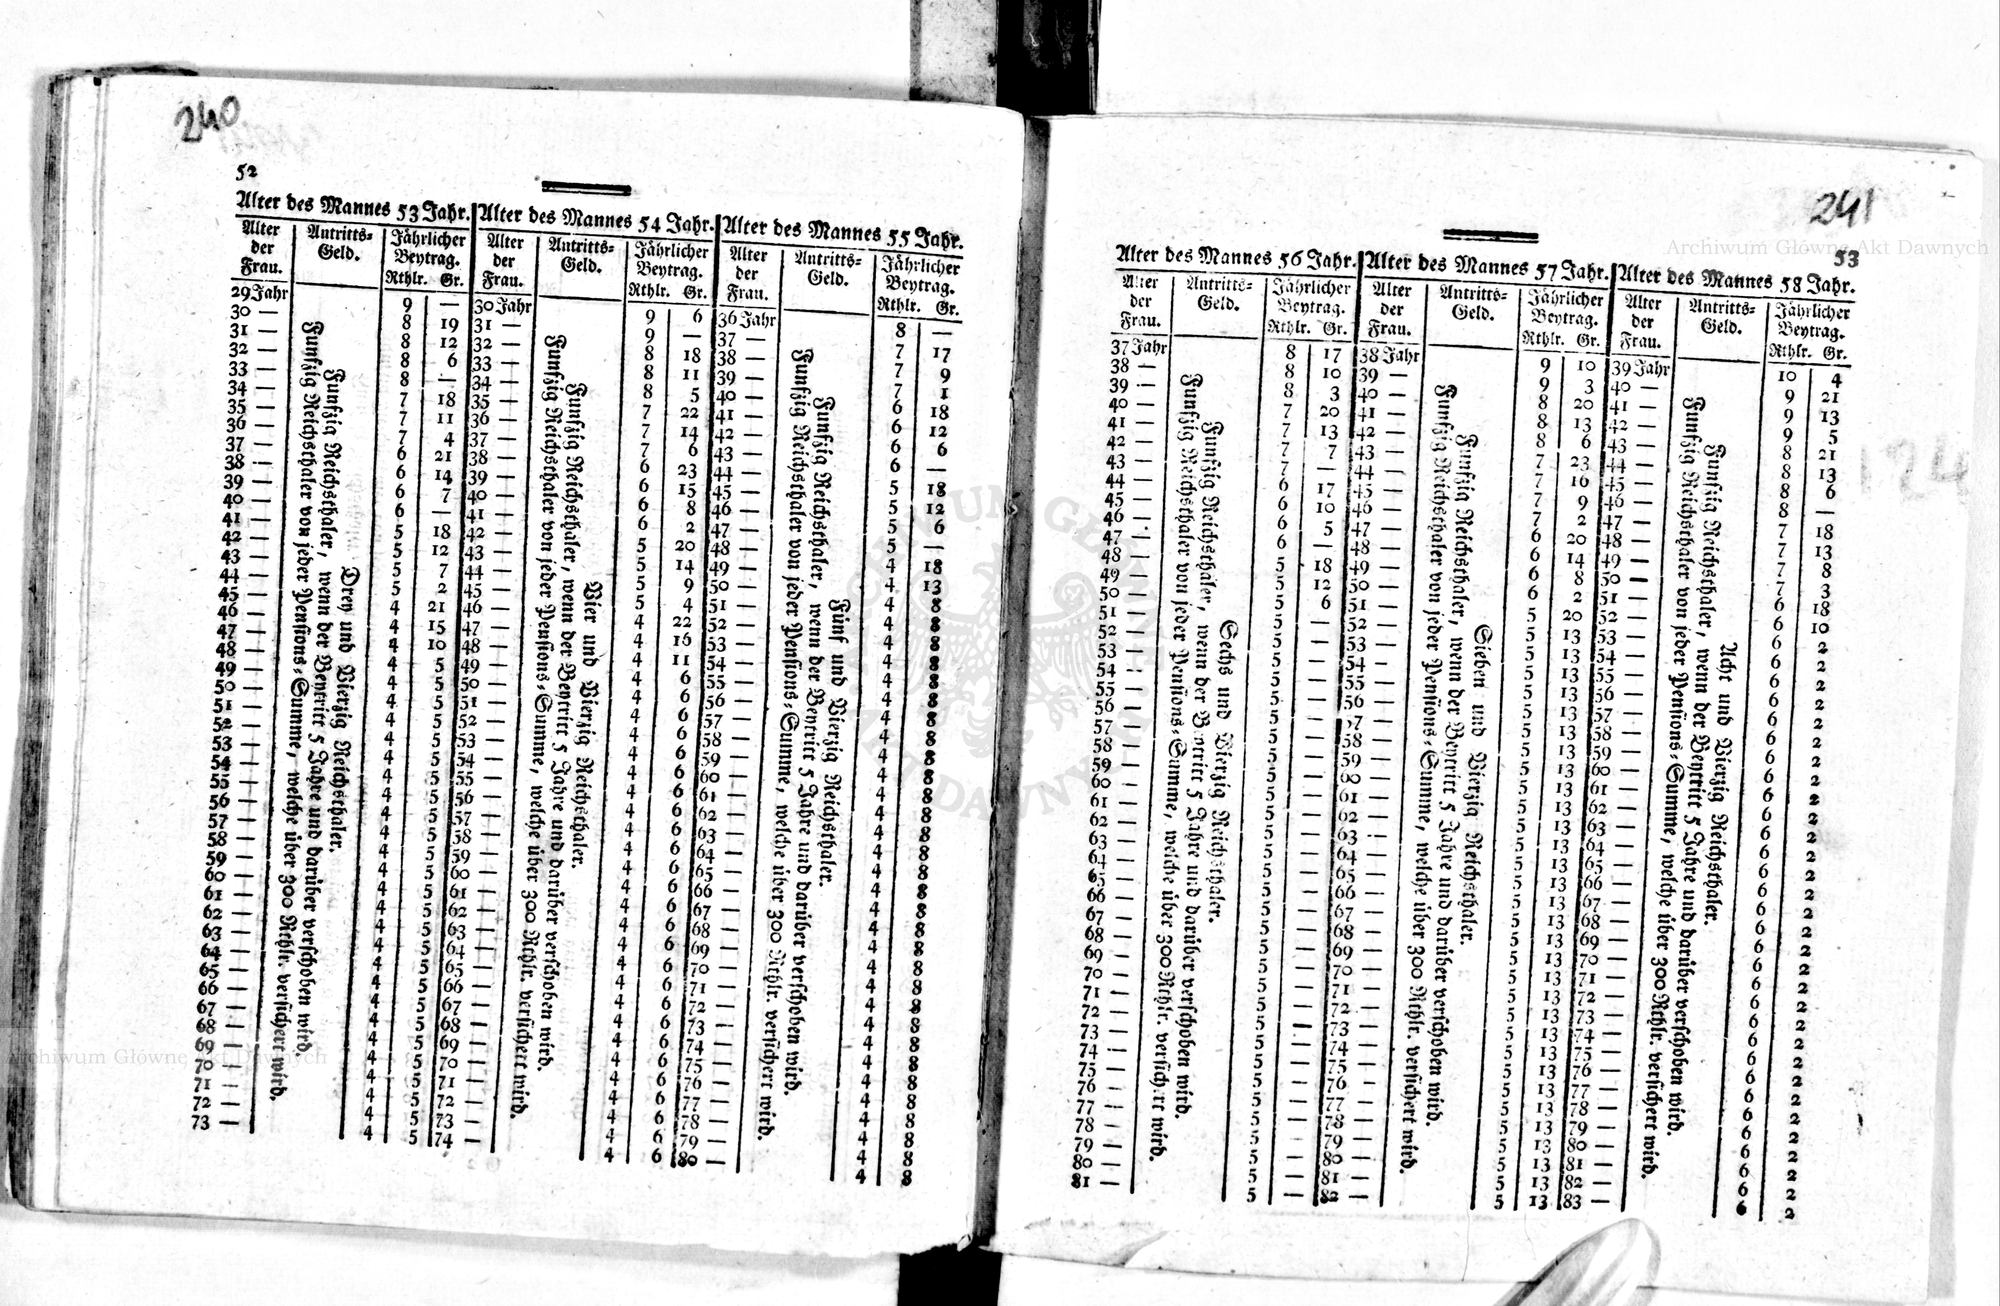 240
52
Alter des Mannes 53 Jahr. Alter des Mannes 54 Jahr. Alter des Mannes 55 Jahr.
Alter der Frau. Antritts-Geld. Jährlicher Beytrag. Rthlr. Gr. Alter der Frau. Antritts-Geld. Jährlicher Beytrag. Rthlr. Gr. Alter der Frau. Antritts-Geld. Jährlicher Beytrag. Rthlr. Gr.
29 Jahr 9 — 30 Jahr 9 6 36 Jahr 8 —
30 — 8 19 31 — 9 — 37 — 7 17
31 — 8 12 32 — 8 18 38 — 7 9
32 — 8 6 33 — 8 11 39 — 7 1
33 — 8 — 34 — 8 5 40 — 6 18
34 — 7 18 35 — 7 22 41 — 6 12
35 — 7 11 36 — 7 14 42 — 6 6
36 — 7 4 37 — 7 6 43 — 6 —
37 — 6 21 38 — 6 23 44 — 5 18
38 — 6 14 39 — 6 15 45 — 5 12
39 — 6 7 40 — 6 8 46 — 5 6
40 — 6 — 41 — 6 2 47 — 5 —
41 — 5 18 42 — 5 20 48 — 4 18
42 — 5 12 43 — 5 14 49 — 4 13
43 — 5 7 44 — 5 9 50 — 4 8
44 — 5 2 45 — 5 4 51 — 4 8
45 — 4 21 46 — 4 22 52 — 4 8
46 — 4 15 47 — 4 16 53 — 4 8
47 — 4 10 48 — 4 11 54 — 4 8
48 — 4 5 49 — 4 6 55 — 4 8
49 — 4 5 50 — 4 6 56 — 4 8
50 — 4 5 51 — 4 6 57 — 4 8
51 — 4 5 52 — 4 6 58 — 4 8
52 — 4 5 53 — 4 6 59 — 4 8
53 — 4 5 54 — 4 6 60 — 4 8
54 — 4 5 55 — 4 6 61 — 4 8
55 — 4 5 56 — 4 6 62 — 4 8
56 — 4 5 57 — 4 6 63 — 4 8
57 — 4 5 58 — 4 6 64 — 4 8
58 — 4 5 59 — 4 6 65 — 4 8
59 — 4 5 60 — 4 6 66 — 4 8
60 — 4 5 61 — 4 6 67 — 4 8
61 — 4 5 62 — 4 6 68 — 4 8
62 — 4 5 63 — 4 6 69 — 4 8
63 — 4 5 64 — 4 6 70 — 4 8
64 — 4 5 65 — 4 6 71 — 4 8
65 — 4 5 66 — 4 6 72 — 4 8
66 — 4 5 67 — 4 6 73 — 4 8
67 — 4 5 68 — 4 6 74 — 4 8
68 — 4 5 69 — 4 6 75 — 4 8
69 — 4 5 70 — 4 6 76 — 4 8
70 — 4 5 71 — 4 6 77 — 4 8
71 — 4 5 72 — 4 6 78 — 4 8
72 — 4 5 73 — 4 6 79 — 4 8
73 — 4 5 74 — 4 6 80 — 4 8
Drey und Vierzig Reichsthaler.
Funfzig Reichsthaler, wenn der Beytritt 5 Jahre und darüber verschoben wird.
Funfzig Reichsthaler von jeder Pensions-Summe, welche über 300 Rthlr. versichert wird.
Vier und Vierzig Reichsthaler.
Funfzig Reichsthaler, wenn der Beytritt 5 Jahre und darüber verschoben wird.
Funfzig Reichsthaler von jeder Pensions-Summe, welche über 300 Rthlr. versichert wird.
Fünf und Vierzig Reichsthaler.
Funfzig Reichsthaler, wenn der Beytritt 5 Jahre und darüber verschoben wird.
Funfzig Reichsthaler von jeder Pensions-Summe, welche über 300 Rthlr. versichert wird.
241
53
Alter des Mannes 56 Jahr. Alter des Mannes 57 Jahr. Alter des Mannes 58 Jahr.
Alter der Frau. Antritts-Geld. Jährlicher Beytrag. Rthlr. Gr. Alter der Frau. Antritts-Geld. Jährlicher Beytrag. Rthlr. Gr. Alter der Frau. Antritts-Geld. Jährlicher Beytrag. Rthlr. Gr.
37 Jahr 8 17 38 Jahr 9 10 39 Jahr 10 4
38 — 8 10 39 — 9 3 40 — 9 21
39 — 8 3 40 — 8 20 41 — 9 13
40 — 7 20 41 — 8 13 42 — 9 5
41 — 7 13 42 — 8 6 43 — 8 21
42 — 7 7 43 — 7 23 44 — 8 13
43 — 7 — 44 — 7 16 45 — 8 6
44 — 6 17 45 — 7 9 46 — 8 —
45 — 6 10 46 — 7 2 47 — 7 18
46 — 6 5 47 — 6 20 48 — 7 13
47 — 6 — 48 — 6 14 49 — 7 8
48 — 5 18 49 — 6 8 50 — 7 3
49 — 5 12 50 — 6 2 51 — 6 18
50 — 5 6 51 — 5 20 52 — 6 10
51 — 5 — 52 — 5 13 53 — 6 2
52 — 5 — 53 — 5 13 54 — 6 2
53 — 5 — 54 — 5 13 55 — 6 2
54 — 5 — 55 — 5 13 56 — 6 2
55 — 5 — 56 — 5 13 57 — 6 2
56 — 5 — 57 — 5 13 58 — 6 2
57 — 5 — 58 — 5 13 59 — 6 2
58 — 5 — 59 — 5 13 60 — 6 2
59 — 5 — 60 — 5 13 61 — 6 2
60 — 5 — 61 — 5 13 62 — 6 2
61 — 5 — 62 — 5 13 63 — 6 2
62 — 5 — 63 — 5 13 64 — 6 2
63 — 5 — 64 — 5 13 65 — 6 2
64 — 5 — 65 — 5 13 66 — 6 2
65 — 5 — 66 — 5 13 67 — 6 2
66 — 5 — 67 — 5 13 68 — 6 2
67 — 5 — 68 — 5 13 69 — 6 2
68 — 5 — 69 — 5 13 70 — 6 2
69 — 5 — 70 — 5 13 71 — 6 2
70 — 5 — 71 — 5 13 72 — 6 2
71 — 5 — 72 — 5 13 73 — 6 2
72 — 5 — 73 — 5 13 74 — 6 2
73 — 5 — 74 — 5 13 75 — 6 2
74 — 5 — 75 — 5 13 76 — 6 2
75 — 5 — 76 — 5 13 77 — 6 2
76 — 5 — 77 — 5 13 78 — 6 2
77 — 5 — 78 — 5 13 79 — 6 2
78 — 5 — 79 — 5 13 80 — 6 2
79 — 5 — 80 — 5 13 81 — 6 2
80 — 5 — 81 — 5 13 82 — 6 2
81 — 5 — 82 — 5 13 83 — 6 2
Sechs und Vierzig Reichsthaler.
Funfzig Reichsthaler, wenn der Beytritt 5 Jahre und darüber verschoben wird.
Funfzig Reichsthaler von jeder Pensions-Summe, welche über 300 Rthlr. versichert wird.
Sieben und Vierzig Reichsthaler.
Funfzig Reichsthaler, wenn der Beytritt 5 Jahre und darüber verschoben wird.
Funfzig Reichsthaler von jeder Pensions-Summe, welche über 300 Rthlr. versichert wird.
Acht und Vierzig Reichsthaler.
Funfzig Reichsthaler, wenn der Beytritt 5 Jahre und darüber verschoben wird.
Funfzig Reichsthaler von jeder Pensions-Summe, welche über 300 Rthlr. versichert wird.
124
Archiwum Główne Akt Dawnych
Archiwum Główne Akt Dawnych
ARCHIWUM GŁÓWNE AKT DAWNYCH